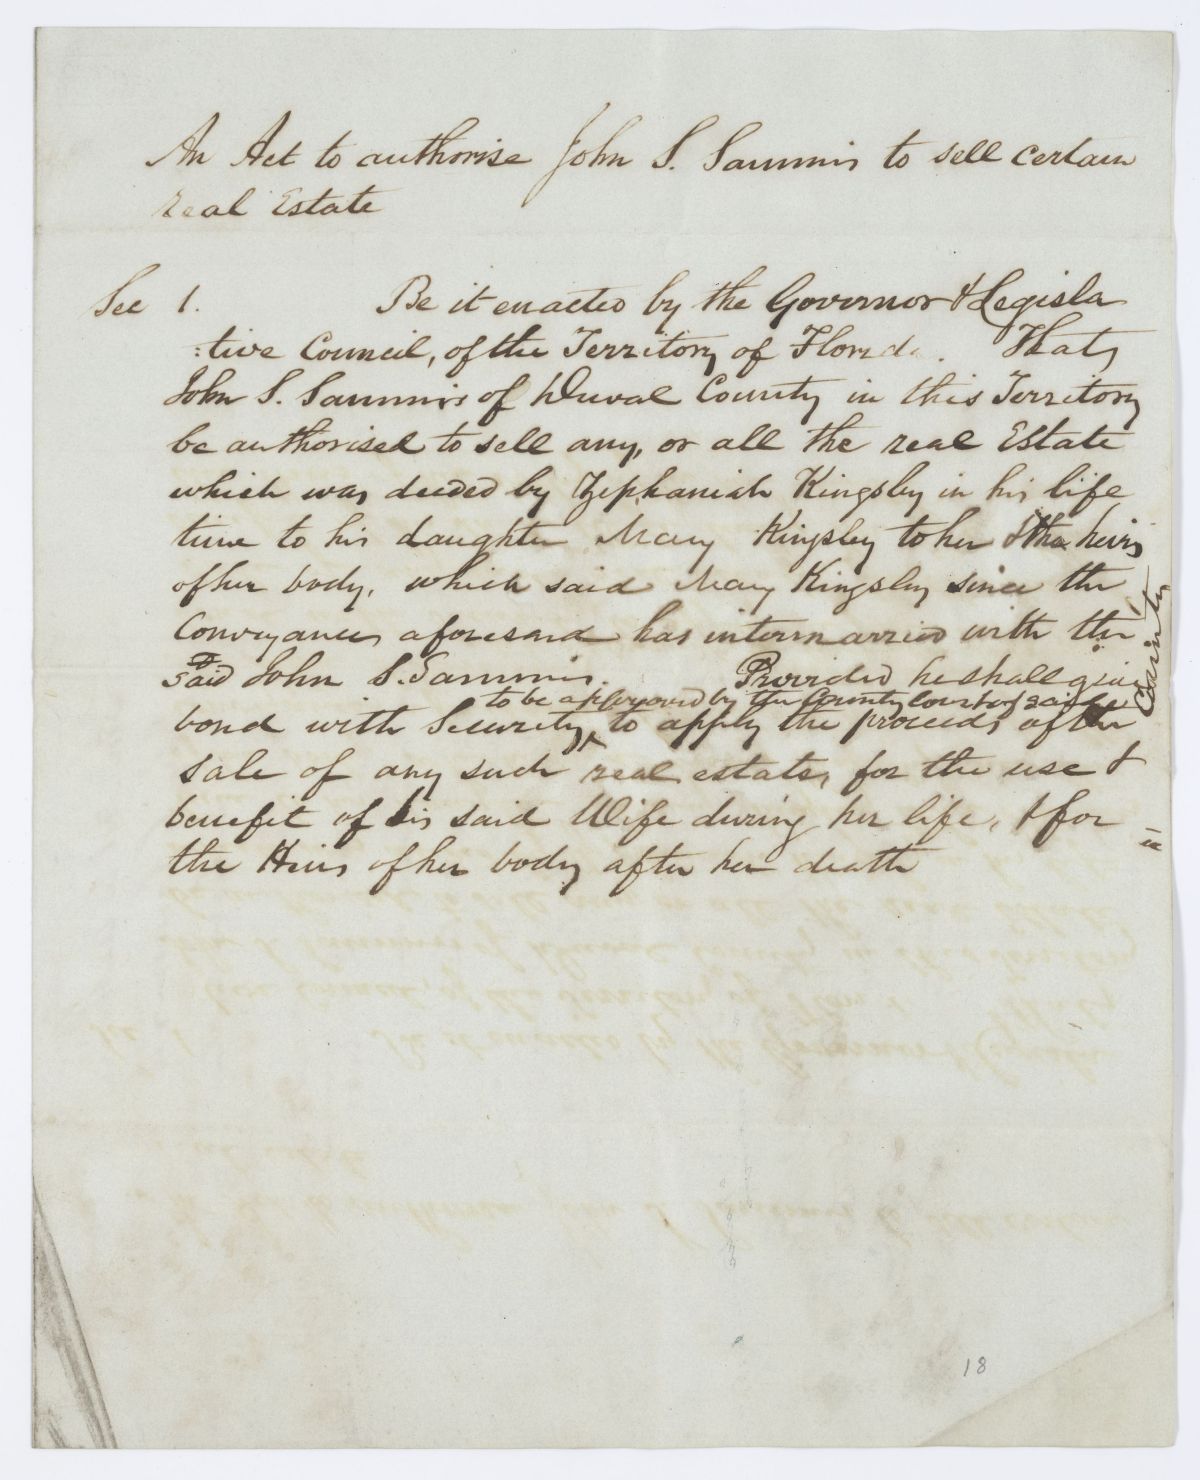 An Act to authorise John S. Sammis to sell certain
real Estate
Sec 1. Be it enacted by the Governor & Legisla
tive Council, of the Territory of Florida. That,
John S. Sammis of Duval County in this Territory
be authorised to sell any, or all the real Estate
which was deeded by Zephaniah Kingsley in his life
time to his daughter Mary Kingsley to her & the heirs
of her body, which said Mary Kingsley since the
Conveyance, aforesaid has intermarried with the
said John S. Sammis. Provided he shall give
to be approved by the County Court of said
County
bond with Security, to apply the proceeds of the
sale of any such real estate, for the use &
benefit of his said Wife during her life, & for
the Heirs of her body after her death
18